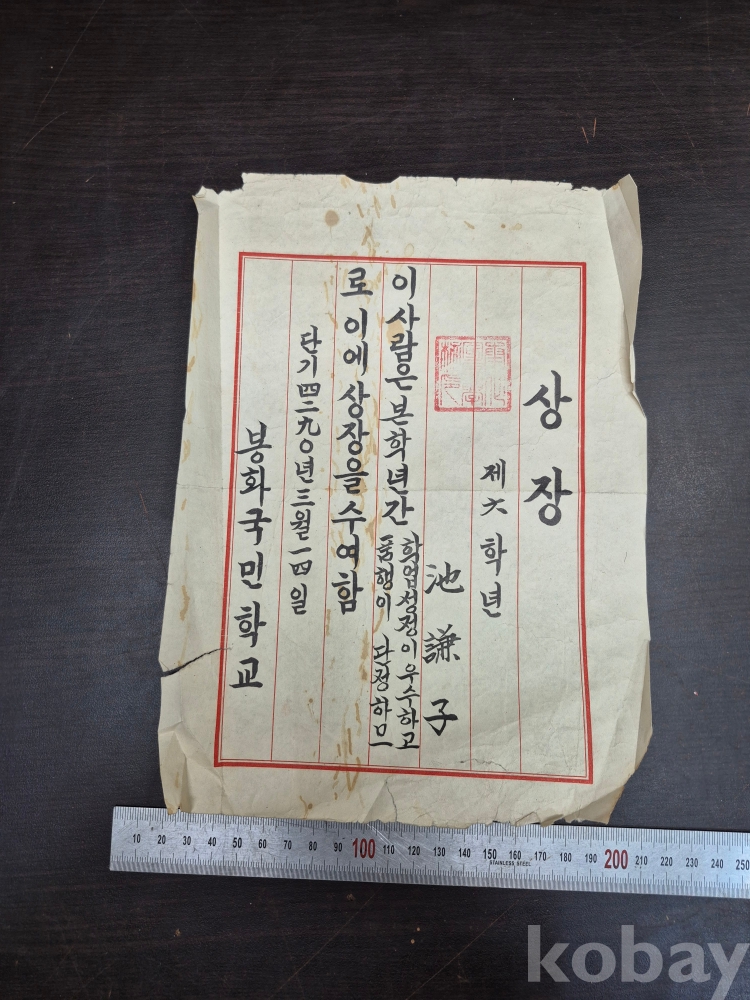 상장
제六학년
池謙子
이 사람은 본학년간 학업성정이 우수하고
품행이 단정하므
로 이에 상장을 수여함
단기四二九〇년三월一四일
봉화국민학교
10 20 30 40 50 60 70 80 90 100 110 120 130 140 150 160 170 180 190 200 210 220 230 240 250
STAINLESS STEEL
kobay